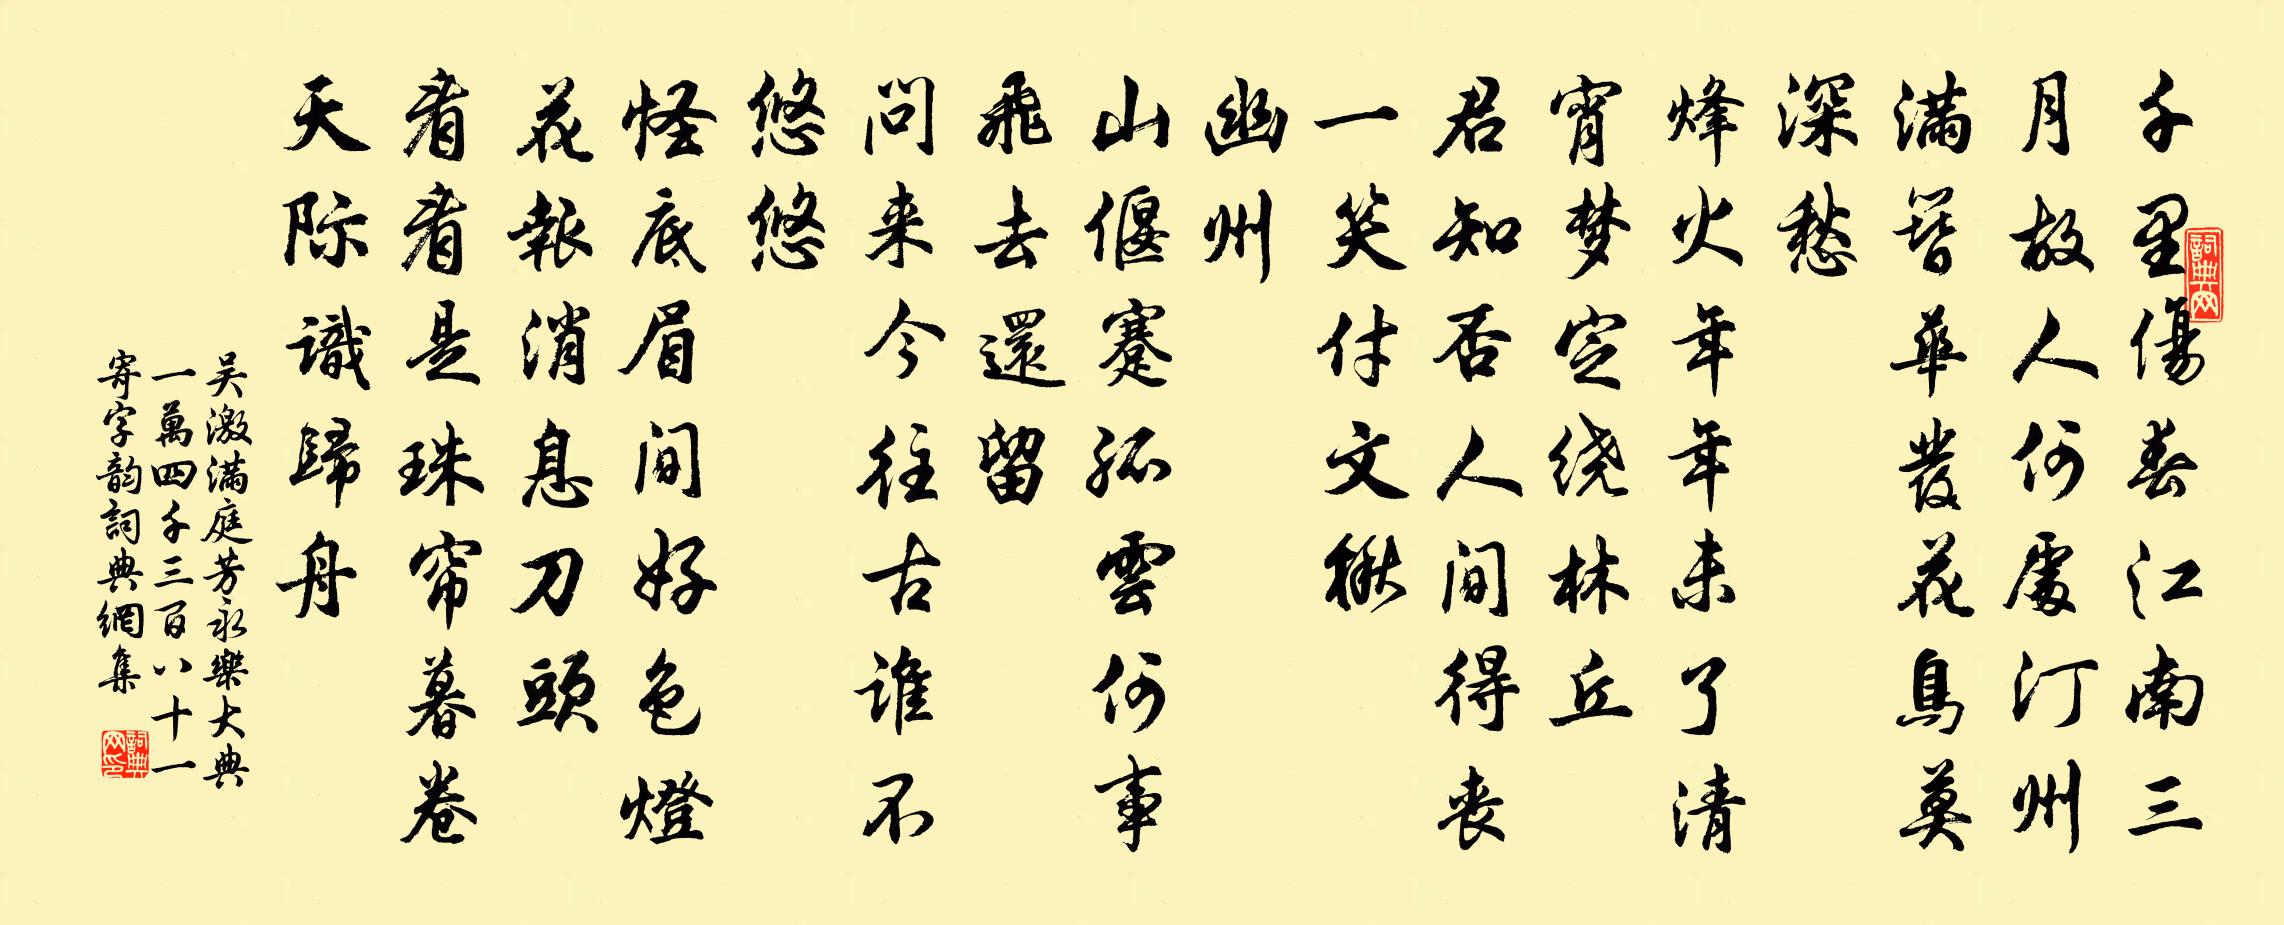 千里傷春江南三
月故人何處汀州
满簪華發花鳥莫
深愁
烽火年年未了清
宵梦定绕林丘
君知否人间得丧
一笑付文楸
幽州
山偃蹇孤雲何事
飛去還留
问来今往古谁不
悠悠
怪底眉间好色燈
花報消息刀頭
看看是珠帘暮卷
天际識歸舟
吴激满庭芳永樂大典
一萬四千三百八十一
寄字韵詞典網集
詞典网
詞典网印